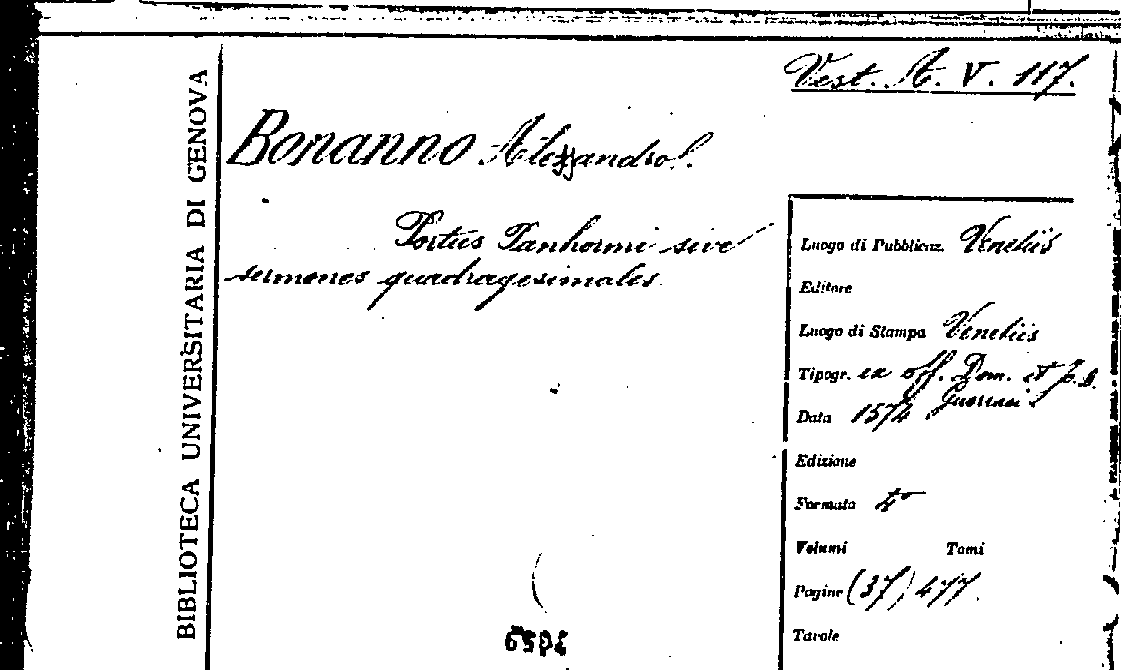 Vest. A. V. 117.
BIBLIOTECA UNIVERSITARIA DI GENOVA
Bonanno Alessandro.
Portus Panhormi sive
sermones quadragesimales.
Luogo di Pubblicaz. Venetiis
Editore
Luogo di Stampa Venetiis
Tipogr. ex off. Dom. et J. B.
Guerraei
Data 1574
Edizione
Formato 4°
Volumi Tomi
Pagine (37) 477.
Tavole